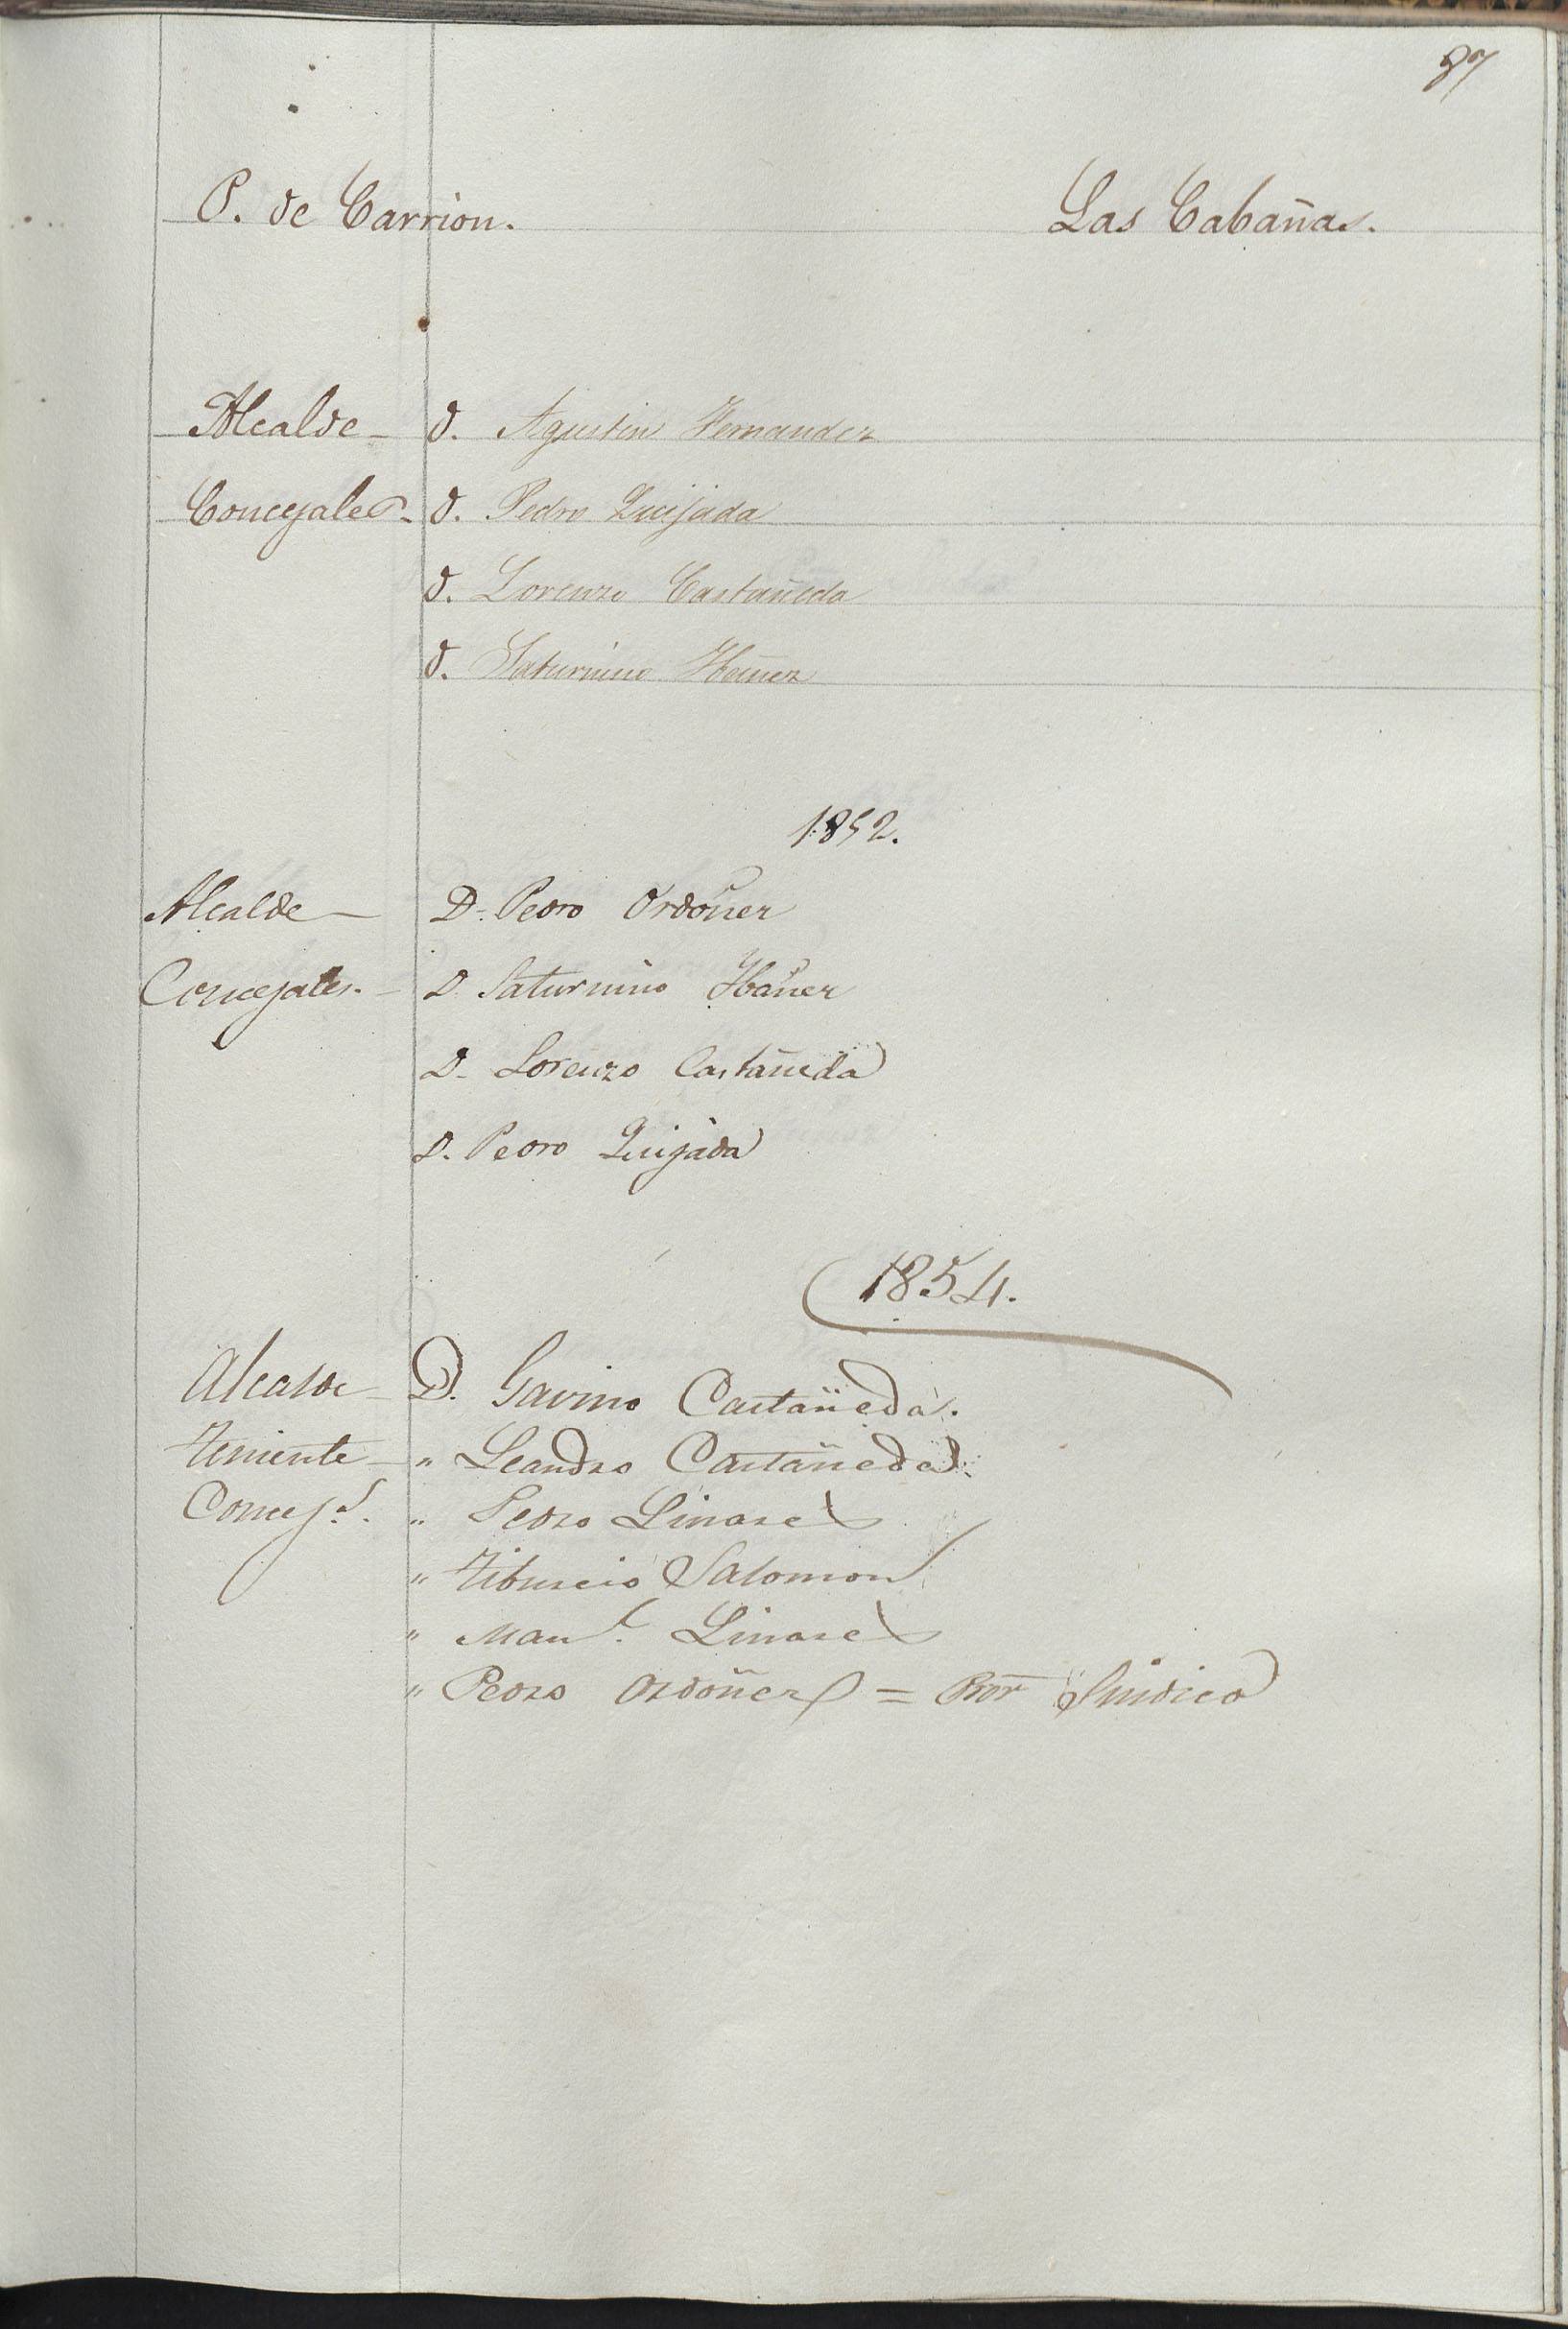 87
P. de Carrion. Las Cabañas.
Alcalde - D. Agustin Fernandez
Concejales - D. Pedro Quijada
D. Lorenzo Castañeda
D. Saturnino Ybañez
1852.
Alcalde - D. Pedro Ordoñez
Concejales. - D. Saturnino Ybañez
D. Lorenzo Castañeda
D. Pedro Quijada
1854.
Alcalde - D. Gavino Castañeda.
Teniente - " Leandro Castañeda.
Concej.s. " Pedro Linares
" Tiburcio Salomon
" Man.l Linares
" Pedro Ordoñez = Pror Sindico